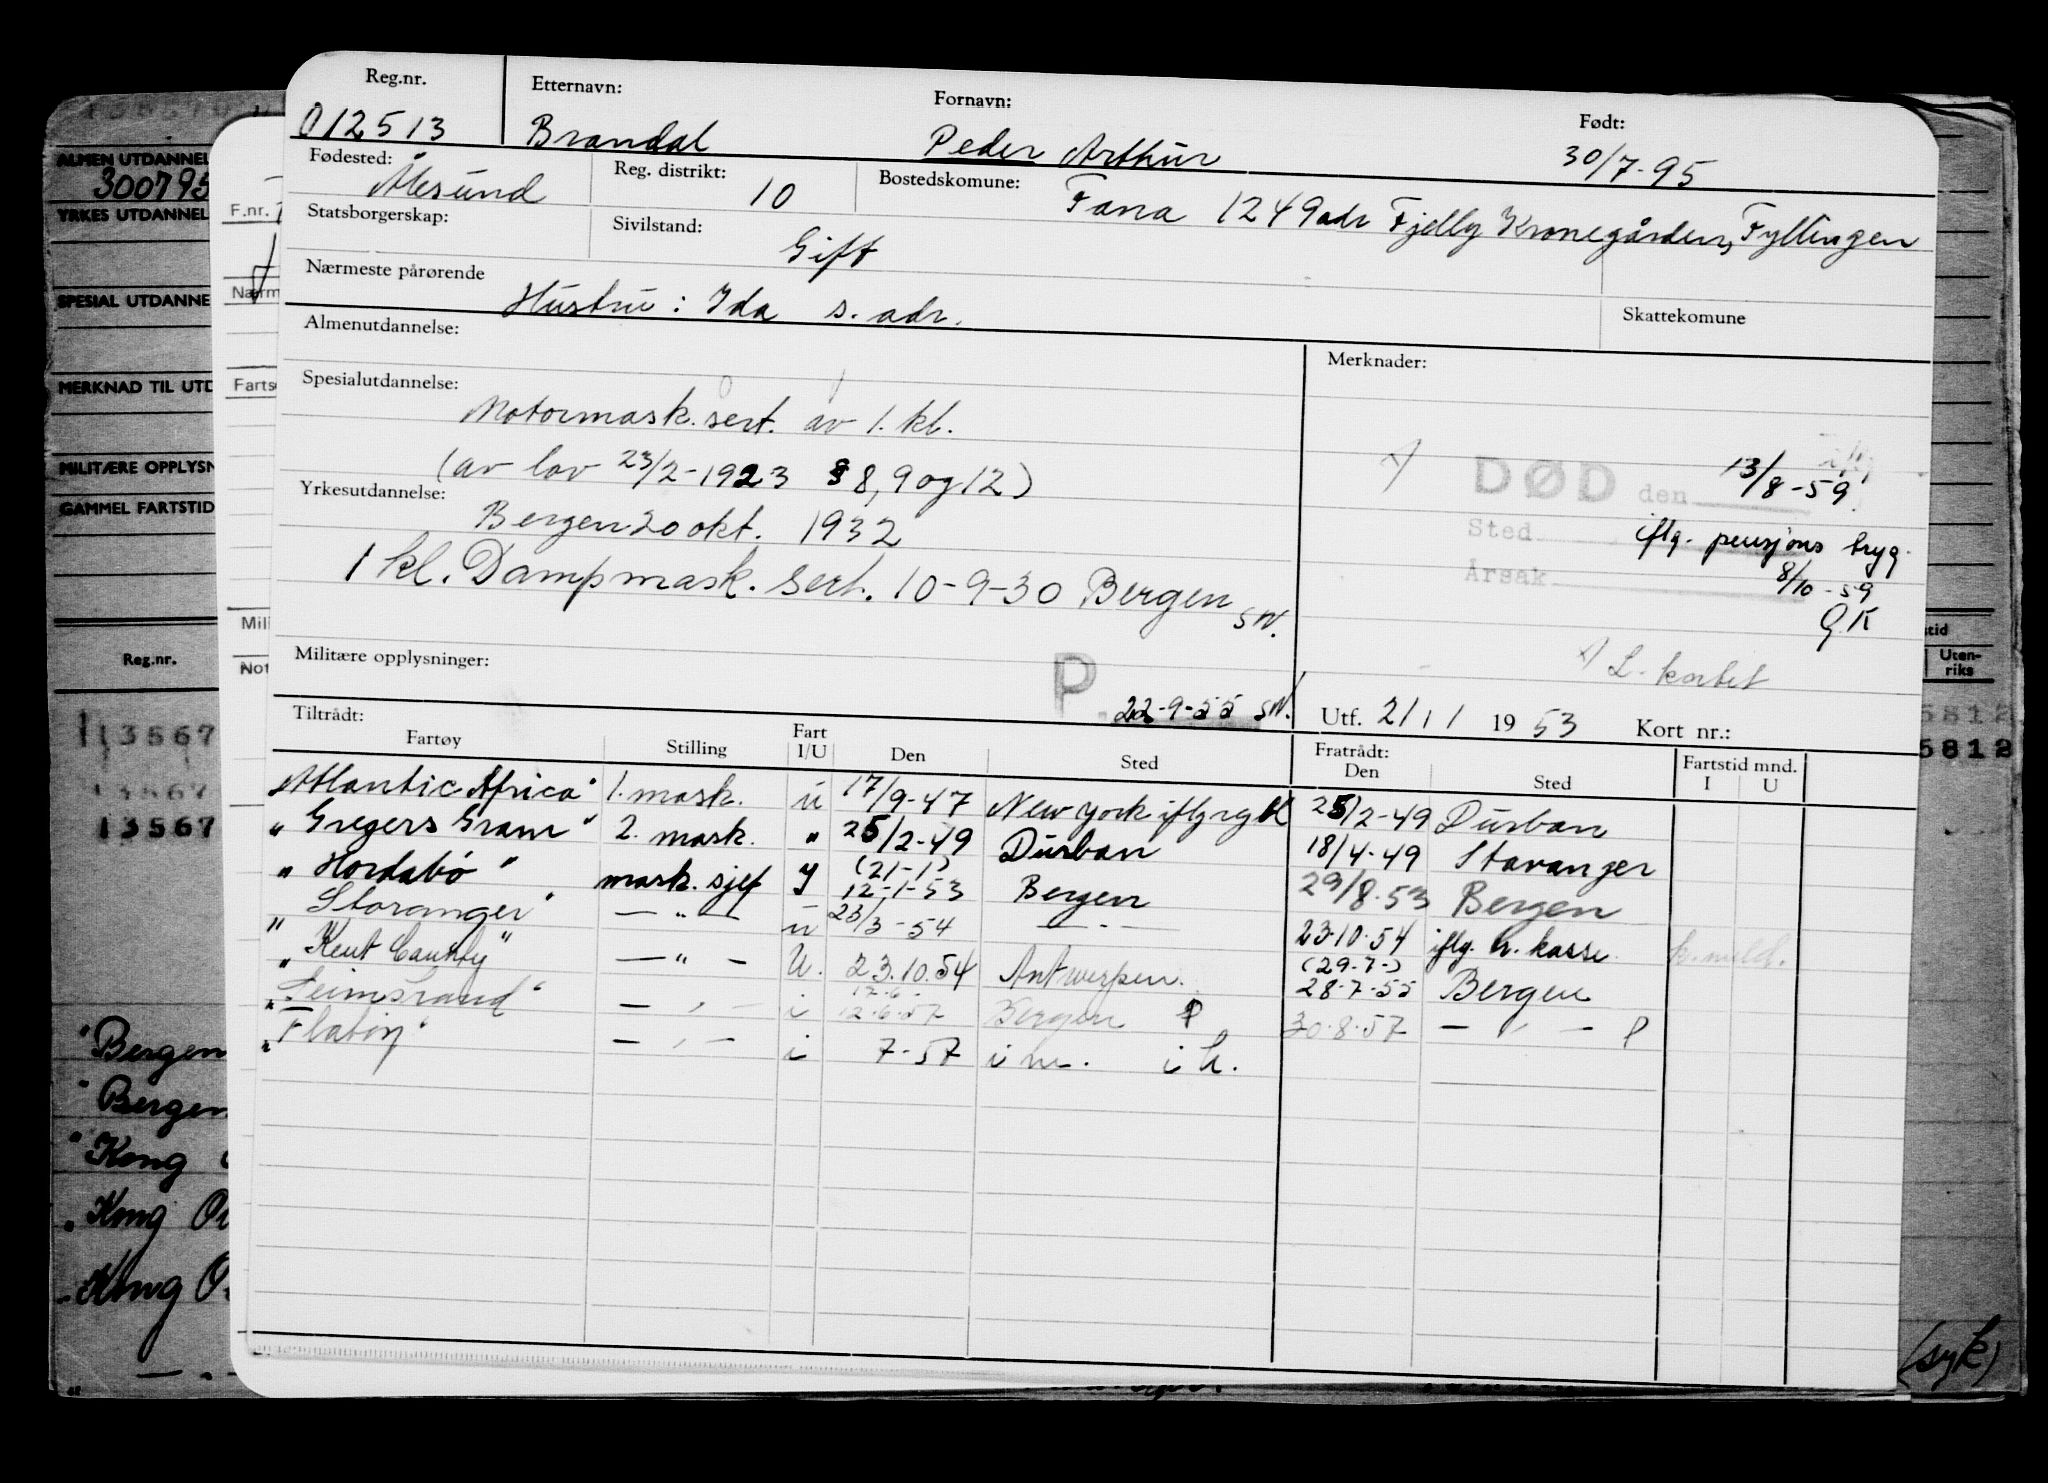 Reg.nr. Etternavn: Fornavn: Født:
012513 Brandal Peder Arthur 30/7-95
Fødested: Ålesund Reg. distrikt: 10 Bostedskomune: Fana 1249 adr Fjelly Kronegården, Fyllingen
Statsborgerskap: Sivilstand: Gift
Nærmeste pårørende Hustru: Ida s. adr. Skattekomune
Almenutdannelse: Merknader:
Spesialutdannelse:
Motormask. sert. av 1. kl.
(av lov 23/2-1923 § 8, 9 og 12)
DØD den 13/8-59
Sted iflg. pensjons tryg.
Årsak 8/10-59
G.K
Yrkesutdannelse:
Bergen 20 okt. 1932
1 kl. Dampmask. sert. 10-9-30 Bergen SW.
L-kortet
Militære opplysninger: P 22-9-55 SW.
Utf. 21/1 1953 Kort nr.:
Tiltrådt: Fratrådt: Fartstid mnd.
Fartøy Stilling Fart I/U Den Sted Den Sted I U
"Atlantic Africa" 1. mask. u 17/9-47 New York iflg 25/2-49 Durban
"Gregers Gram" 2. mask. " 25/2-49 Durban 18/4-49 Stavanger
"Hordabø" mask. sjef I (21-1) 12-1-53 Bergen 29/8.53 Bergen
"Storanger" — " — u 23/3-54 — " — 23.10.54 iflg. h. kasse
"Kent County" — " — U. 23.10.54 Antwerpen. (29-7-) 28-7-55 Bergen
"Leimstrand" — " — i 12-6-57 Bergen P 30-8-57 — " — P
"Flatøy" — " — i 7-57 i m. i h.
ALMEN UTDANNEL
300795
YRKES UTDANNEL
SPESIAL UTDANNE
MERKNAD TIL UTD
MILITÆRE OPPLYSN
GAMMEL FARTSTID
Reg.nr.
13567
13567
13567
"Bergen
"Bergen
"Kong
"Kong
Kong
F.nr.
Nærm
Farts
Mili
Not
tid
Uten-
riks
5812
5812
(syk)